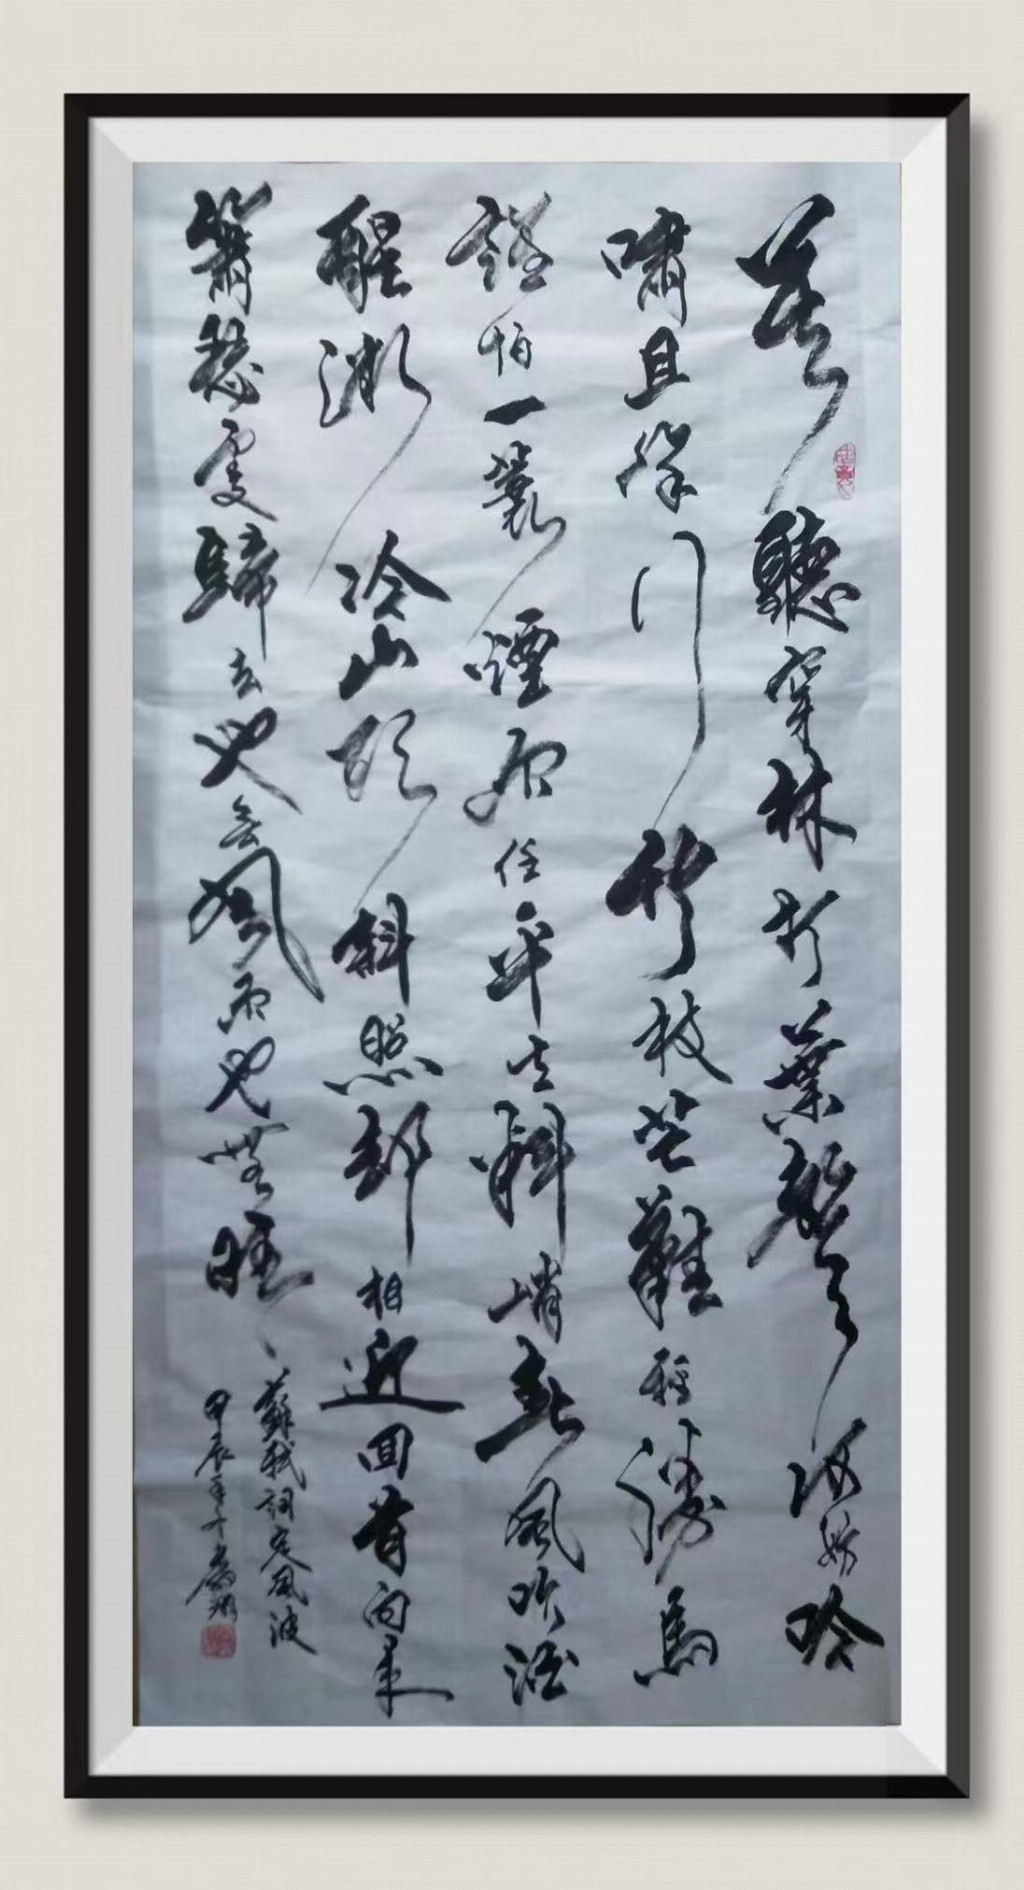 莫聽穿林打葉聲何妨吟
嘯且徐行竹杖芒鞋輕勝馬
誰怕一蓑煙雨任平生料峭春風吹酒
醒微冷山頭斜照却相迎回首向來
蕭瑟處歸去也無風雨也無晴
蘇軾詞定風波
甲辰年